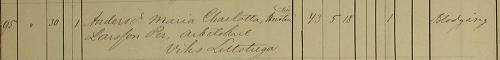 95 " 30 1 Anders d. Maria Charlotta, 43 5 18 1 Blodgång
Larsson Per, arbetskarl
Viks Lillstuga